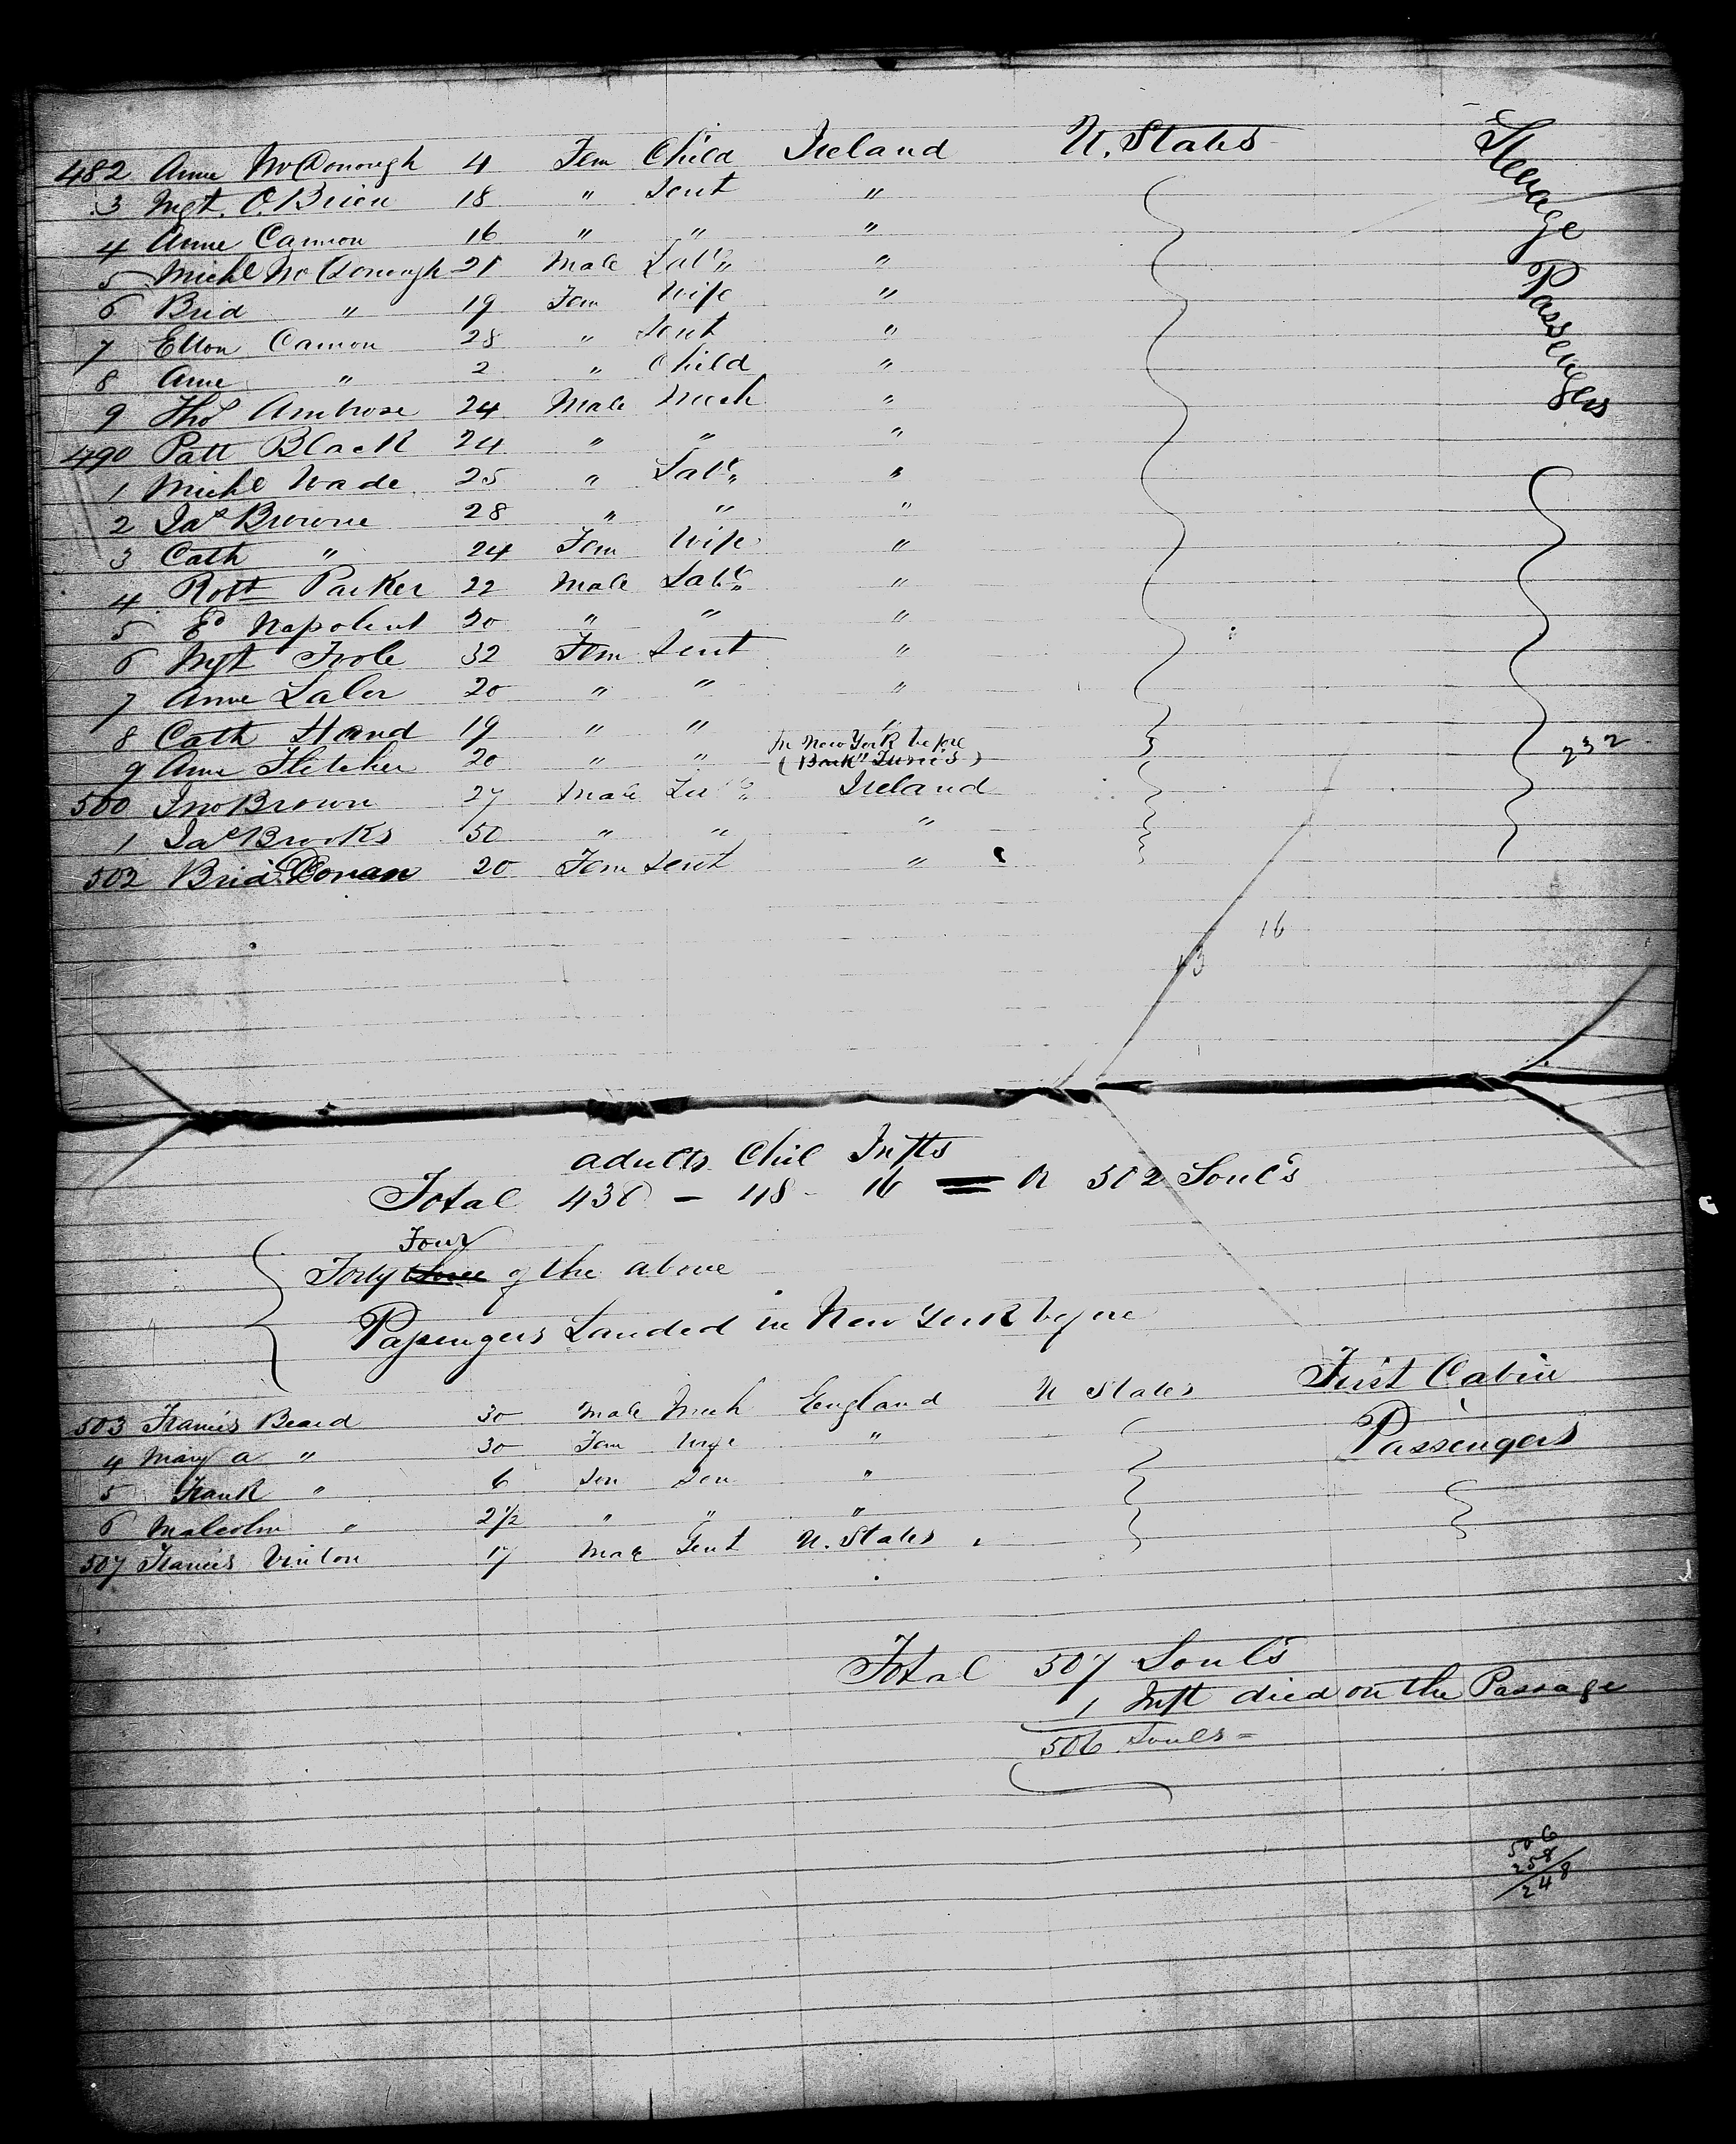 482 Anne McDonough 4 Fem Child Ireland U. States Steerage Passengers
3 Mgt. O.Brien 18 " Servt "
4 Anne Cannon 16 " " "
5 Michl McDonough 21 Male Labr "
6 Brid " 19 Fem Wife "
7 Ellen Cannon 28 " Servt "
8 Anne " 2 " Child "
9 Thos Ambrose 24 Male Mech "
490 Patt Black 24 " " "
1 Michl Wade 25 " Labr "
2 Jas Browne 28 " " "
3 Cath " 24 Fem Wife "
4 Robt Parker 22 Male Labr "
5 Ed 20 " " "
6 Mgt Toole 32 Fem Servt "
7 Anne Lalor 20 " " "
8 Cath Hand 19 " " "
9 Anne Fletcher 20 " " In New York before 232
500 Jno Brown 27 Male Labr Ireland
1 Jas Brooks 50 " " "
502 Brid Conan 20 Fem Servt "
16
13
adults Chil Infts
Total 438 - 48 - 16 = or 502 Soul's
Four
Forty three of the above
Passengers Landed in New York before
503 Francis Beard 30 Male Mech England U States First Cabin
4 Mary A " 30 Fem Wife " Passengers
5 Frank " 6 Son Son "
6 Malcolm " 2 1/2 " " "
507 Francis Vinton 17 Male Gent U. States
Total 507 Soul's
1 Inft died on the Passage
506 Souls =
506
258
248